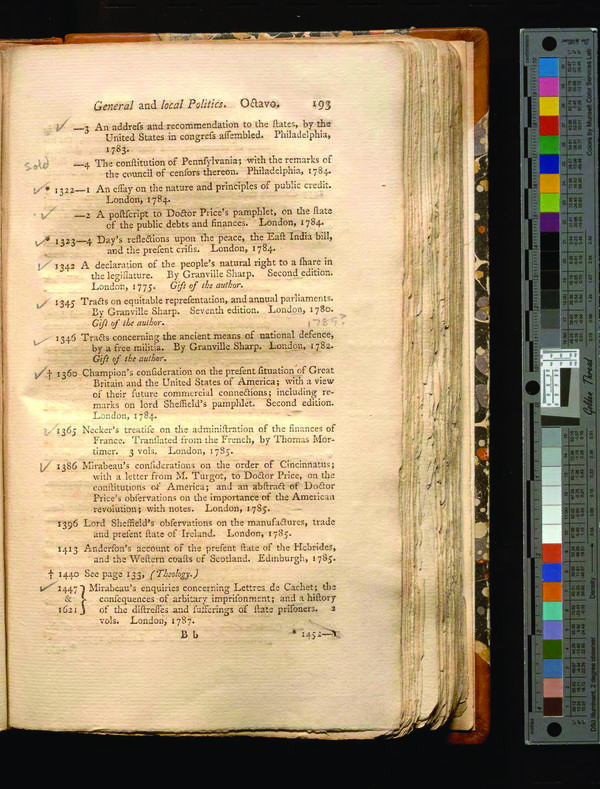 General and local Politics. Octavo. 193
—3 An addreſs and recommendation to the ſtates, by the
United States in congreſs aſſembled. Philadelphia,
1783.
Sold
—4 The conſtitution of Pennſylvania; with the remarks of
the council of cenſors thereon. Philadelphia, 1784.
* 1322—1 An eſſay on the nature and principles of public credit.
London, 1784.
—2 A poſtſcript to Doctor Price's pamphlet, on the ſtate
of the public debts and finances. London, 1784.
* 1323—4 Day's reflections upon the peace, the Eaſt India bill,
and the preſent criſis. London, 1784.
1342 A declaration of the people's natural right to a ſhare in
the legiſlature. By Granville Sharp. Second edition.
London, 1775. Gift of the author.
1345 Tracts on equitable repreſentation, and annual parliaments.
By Granville Sharp. Seventh edition. London, 1780.
Gift of the author. 1785?
1346 Tracts concerning the ancient means of national defence,
by a free militia. By Granville Sharp. London, 1782.
Gift of the author.
† 1360 Champion's conſideration on the preſent ſituation of Great
Britain and the United States of America; with a view
of their future commercial connections; including re-
marks on lord Sheffield's pamphlet. Second edition.
London, 1784.
1365 Necker's treatiſe on the adminiſtration of the finances of
France. Tranſlated from the French, by Thomas Mor-
timer. 3 vols. London, 1785.
1386 Mirabeau's conſiderations on the order of Cincinnatus;
with a letter from M. Turgot, to Doctor Price, on the
conſtitutions of America; and an abſtract of Doctor
Price's obſervations on the importance of the American
revolution; with notes. London, 1785.
1396 Lord Sheffield's obſervations on the manufactures, trade
and preſent ſtate of Ireland. London, 1785.
1413 Anderſon's account of the preſent ſtate of the Hebrides,
and the Weſtern coaſts of Scotland. Edinburgh, 1785.
† 1440 See page 135, (Theology.)
1447 } Mirabeau's enquiries concerning Lettres de Cachet; the
& } conſequences of arbitary impriſonment; and a hiſtory
1621 } of the diſtreſſes and ſufferings of ſtate priſoners. 2
vols. London, 1787.
B b * 1452—
Colors by Munsell Color Services Lab
Golden Thread
Density
D50 Illuminant, 2 degree observer